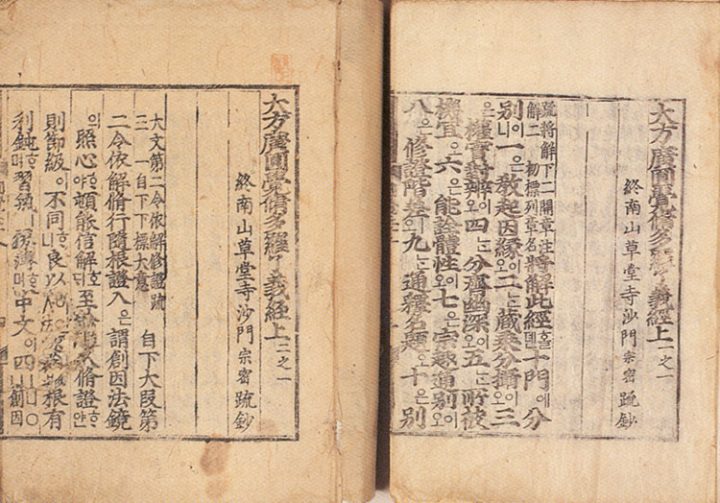 大方廣圓覺脩多羅了義經上一之一
終南山草堂寺沙門宗密疏鈔
疏將解下二開章注
解二 初標列章名 將解此經홀뎬十門에分
別이니一은敎起因緣이오二는藏乘分攝이오三
은權實對辨이오四는分齊幽深이오五는所被
機宜오六은能詮體性이오七은宗趣通別이오
八은修證階差이오九는通釋名題오十은別
大方廣圓覺脩多羅了義經上三之一
終南山草堂寺沙門宗密疏鈔
大文第二令依解修證疏
三 一自下下標大意 自下大段第
二令依解脩行隨根證入은謂創因法鏡
의照心ᄒᆞ야頓能信解ᄒᆞ고至入脩證ᄒᆞ얀
則節級이不同ᄒᆞ니良以根有
利鈍ᄒᆞ며習薄中文이四創因